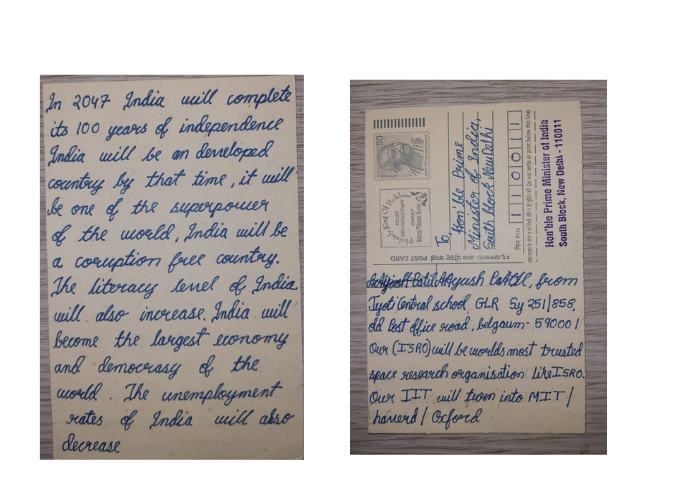 In 2047 India will complete
its 100 years of independence
India will be an developed
country by that time, it will
be one of the superpower
of the world, India will be
a coruption free country.
The literacy level of India
will also increase. India will
become the largest economy
and democrasy of the
world. The unemployment
rates of India will also
decrease
To,
Hon'ble Prime
Minister of India,
South block Newdelhi
110011
Hon'ble Prime Minister of India
South Block, New Delhi - 110011
POST CARD
Aayush Patil, from
Jyoti Central school GLR Sy 251/856,
old Post office road, belgaum - 590001
Our (ISRO) will be worlds most trusted
space research organisation like ISRO.
Our IIT will turn into MIT/
havard/Oxford